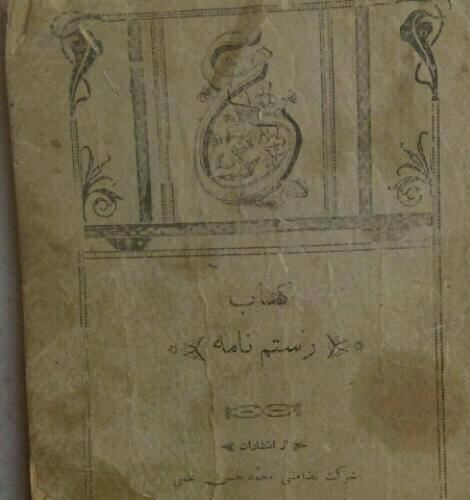 کتاب
رستم نامه
از انتشارات
شرکت تضامنی محمد حسن علمی